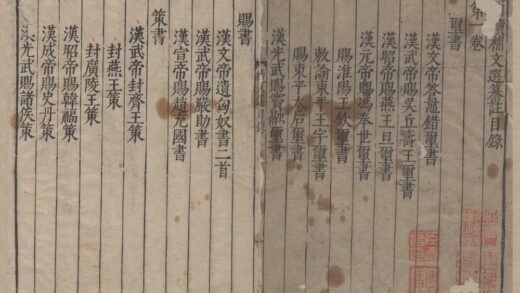 文選註目錄
第一卷
璽書
漢文帝答鼂錯璽書
漢武帝賜吾丘壽王璽書
漢昭帝賜燕王旦璽書
漢元帝賜馮奉世璽書
賜淮陽王欽璽書
敕諭東平王宇璽書
賜東平太后璽書
漢光武賜竇融璽書
賜書
漢文帝遺匈奴書二首
漢武帝賜嚴助書
漢宣帝賜趙充國書
策書
漢武帝封齊王策
封燕王策
封廣陵王策
漢昭帝賜韓福策
漢成帝賜史丹策
漢光武賜諸侯策